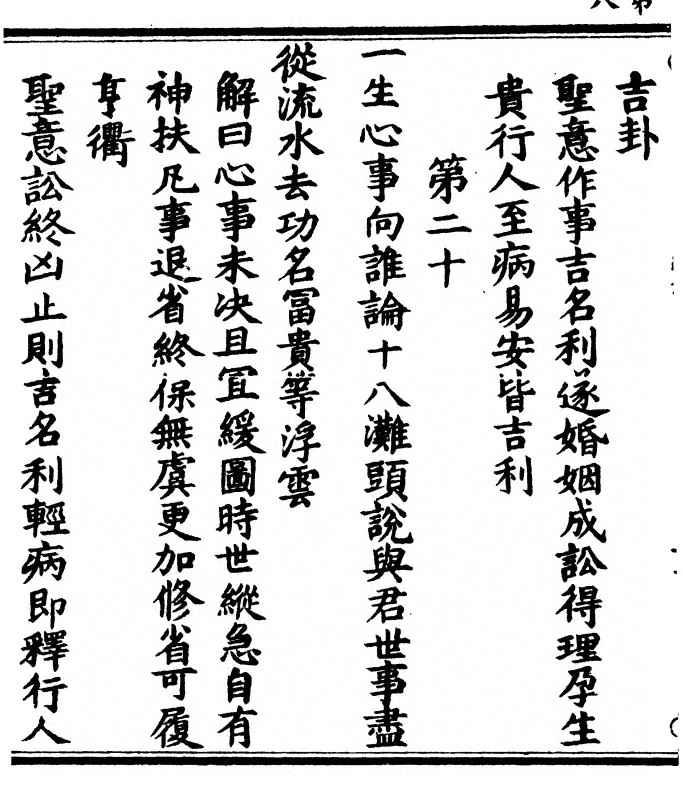 吉卦
聖意作事吉名利遂婚姻成訟得理孕生
貴行人至病易安皆吉利
第二十
一生心事向誰論十八灘頭說與君世事盡
從流水去功名冨貴等浮雲
解曰心事未决且冝緩圖時世縱急自有
神扶凡事退省終保無虞更加修省可履
亨衢
聖意訟終凶止則吉名利輕病即釋行人